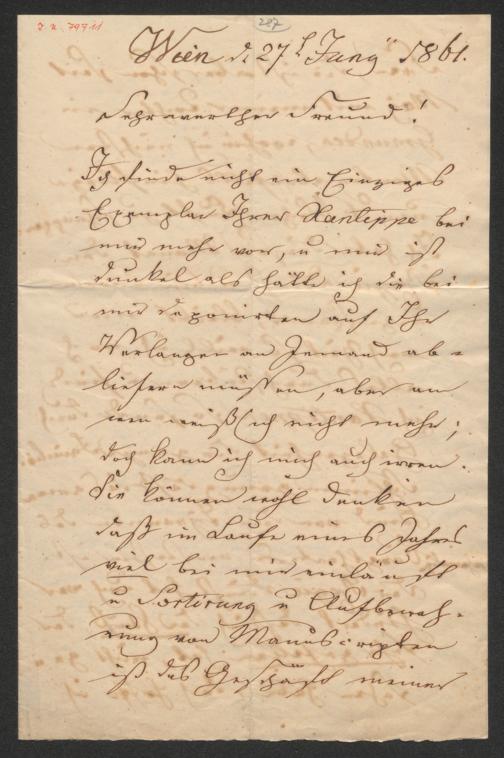 I. N. 79911
287
Wien d. 27t Jung 1861.
Sehr werther Freund!
Ich finde nicht ein Einziges
Exemplar Ihrer Xantippe bei
mir mehr vor, u mir ist
dunkel als hätte ich die bei
mir deponirten auf Ihr
Verlangen an Jemand ab-
liefern müssen, aber an
wen weiß ich nicht mehr;
doch kann ich mich auch irren.
Sie können wohl denken
daß im Laufe eines Jahres
viel bei mir einläuft
u Sortirung u Aufbewah-
rung von Manuscripten
ist das Geschäft meiner